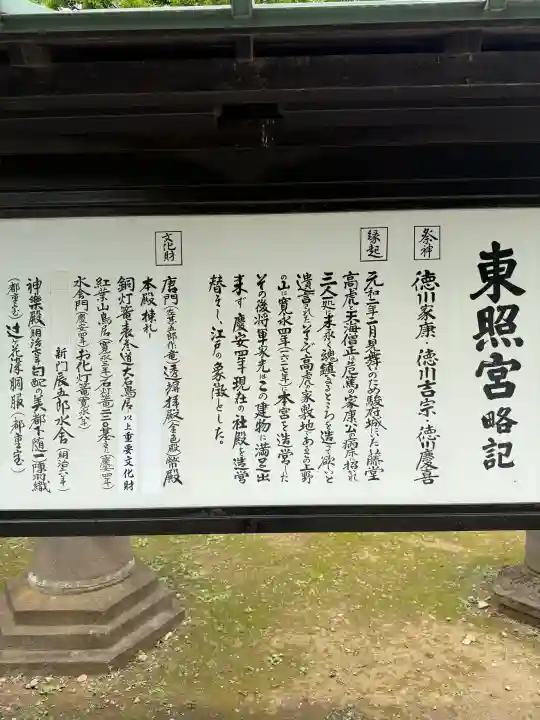 東照宮略記
祭神
徳川家康・徳川吉宗・徳川慶喜
縁起
元和二年二月見舞のため駿府城にいた藤堂
高虎と天海僧正は危篤の家康公の病床に招かれ
三人一処に末永く魂鎮まるところを造って欲しいと
遺言された。そこで高虎の家敷地であるこの上野
の山に寛永四年(一六二七年)に本宮を造営した
その後将軍家光はこの建物に満足出
来ず慶安四年現在の社殿を造営
替えし、江戸の象徴とした。
文化財
唐門(左甚五郎作の竜)透塀拝殿(金色殿)幣殿
本殿棟札
銅灯篭表参道一大石鳥居 以上重要文化財
紅葉山鳥居(寛永 年)石灯篭二三〇基(慶安四年)
水舎門(慶安四年)お化灯篭(寛永八年)
新門辰五郎水舎(明治 年)
神楽殿(明治 年) 陣羽織
(都重宝)辻ヶ花染胴服(都重宝)